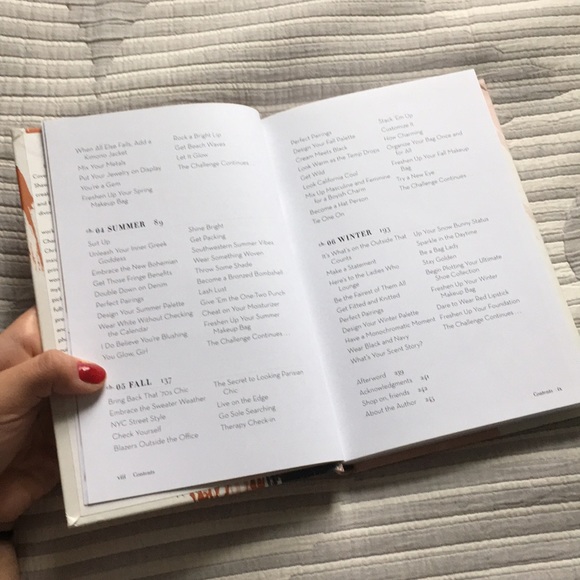 When All Else Fails, Add a
Kimono Jacket
Mix Your Metals
Put Your Jewelry on Display
You're a Gem
Freshen Up Your Spring
Makeup Bag
Rock a Bright Lip
Get Beach Waves
Let It Glow
The Challenge Continues . . .
ch 04 SUMMER 89
Suit Up
Unleash Your Inner Greek
Goddess
Embrace the New Bohemian
Get Those Fringe Benefits
Double Down on Denim
Perfect Pairings
Design Your Summer Palette
Wear White Without Checking
the Calendar
I Do Believe You're Blushing
You Glow, Girl
Shine Bright
Get Packing
Southwestern Summer Vibes
Wear Something Woven
Throw Some Shade
Become a Bronzed Bombshell
Lash Lust
Give 'Em the One-Two Punch
Cheat on Your Moisturizer
Freshen Up Your Summer
Makeup Bag
The Challenge Continues . . .
ch 05 FALL 137
Bring Back That '70s Chic
Embrace the Sweater Weather
NYC Street Style
Check Yourself
Blazers Outside the Office
The Secret to Looking Parisian
Chic
Live on the Edge
Go Sole Searching
Therapy Check-in
viii Contents
Perfect Pairings
Design Your Fall Palette
Cream Meets Black
Look Warm as the Temp Drops
Get Wild
Look California Cool
Mix Up Masculine and Feminine
for a Boyish Charm
Become a Hat Person
Tie One On
Stack 'Em Up
Customize It
How Charming
Organize Your Bag Once and
for All
Freshen Up Your Fall Makeup
Bag
Try a New Eye
The Challenge Continues . . .
ch 06 WINTER 193
It's What's on the Outside That
Counts
Make a Statement
Here's to the Ladies Who
Lounge
Be the Fairest of Them All
Get Fitted and Knitted
Perfect Pairings
Design Your Winter Palette
Have a Monochromatic Moment
Wear Black and Navy
What's Your Scent Story?
Up Your Snow Bunny Status
Sparkle in the Daytime
Be a Bag Lady
Stay Golden
Begin Plotting Your Ultimate
Shoe Collection
Freshen Up Your Winter
Makeup Bag
Dare to Wear Red Lipstick
Freshen Up Your Foundation
The Challenge Continues . . .
Afterword 239
Acknowledgments 241
Shop on, friends 242
About the Author 243
Contents ix